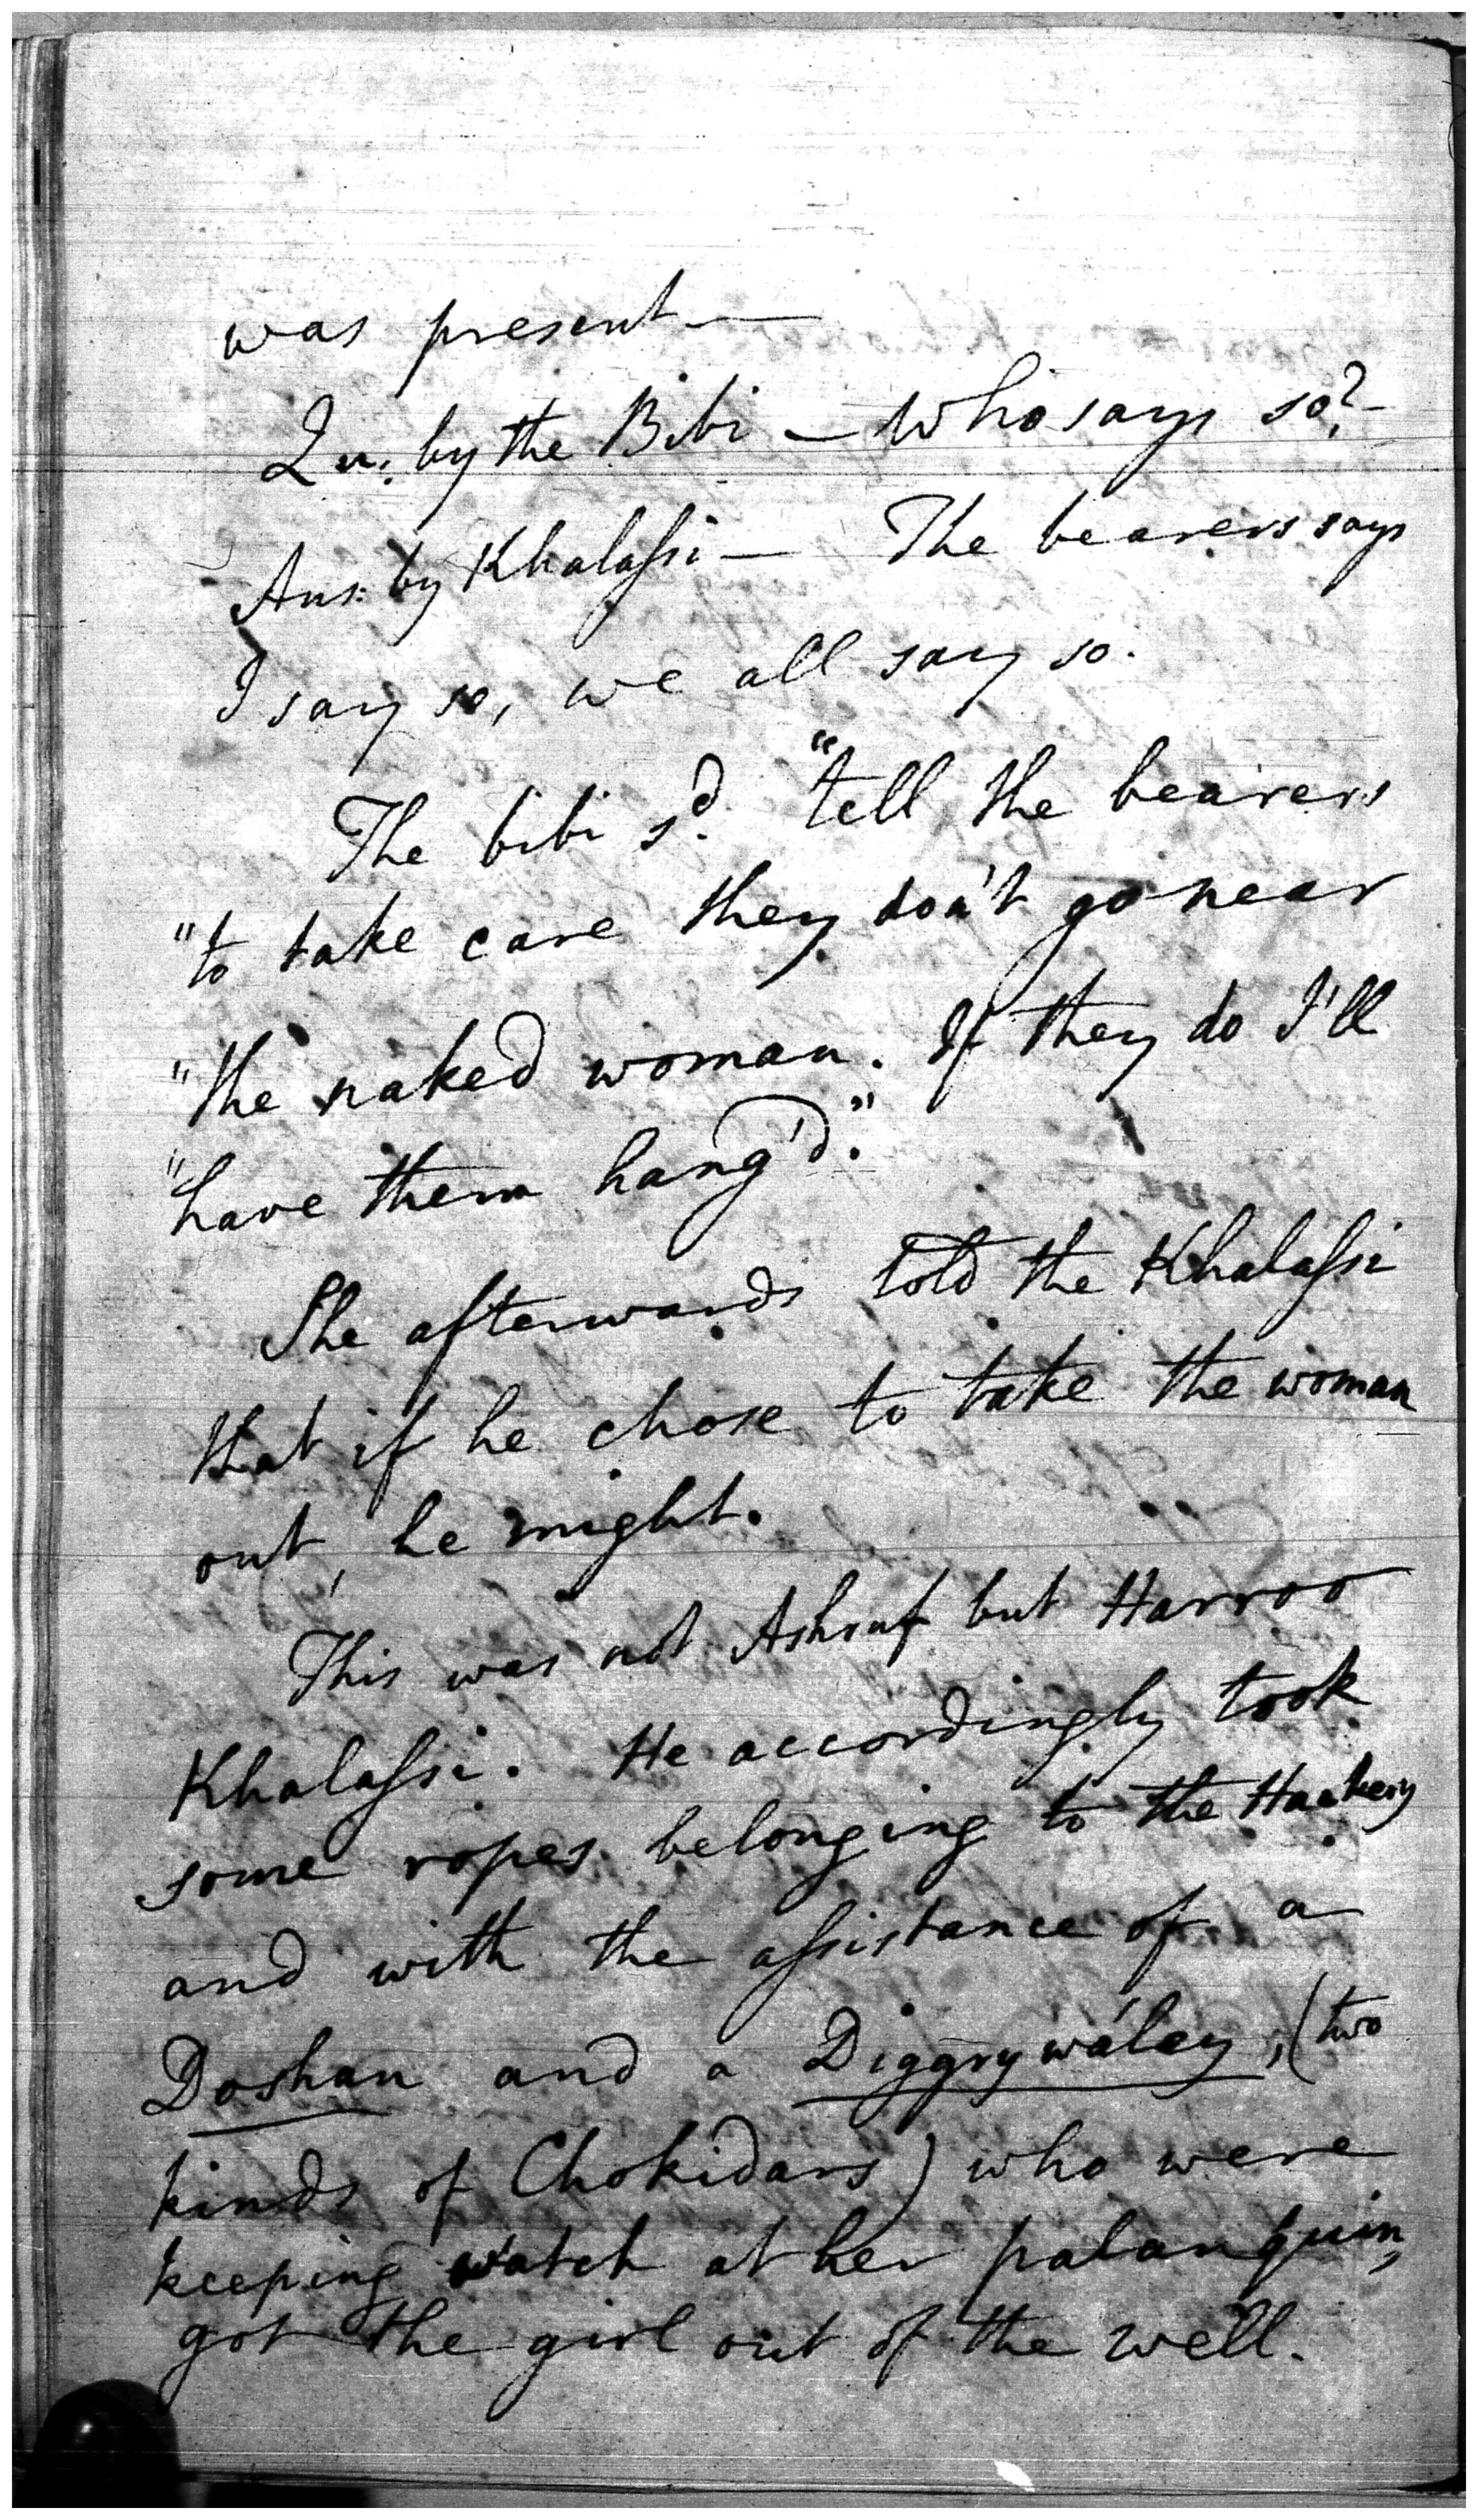 was present —
Qu: by the Bibi — Who says so? —
Ans: by Khalaſsi — The bearers says
I say so, we all say so.
The bibi sd. "tell the bearers
"to take care they don't go near
"the naked woman. If they do I'll
"have them hang'd."
She afterwards told the Khalaſsi
that if he chose to take the woman
out, he might.
This was not Ashruf but Harroo
Khalaſsi. He accordingly took
some ropes belonging to the Hackery
and with the aſsistance of a
Doshan and a Diggrywáley, (two
kinds of Chokidars) who were
keeping watch at her palanquin,
got the girl out of the well.